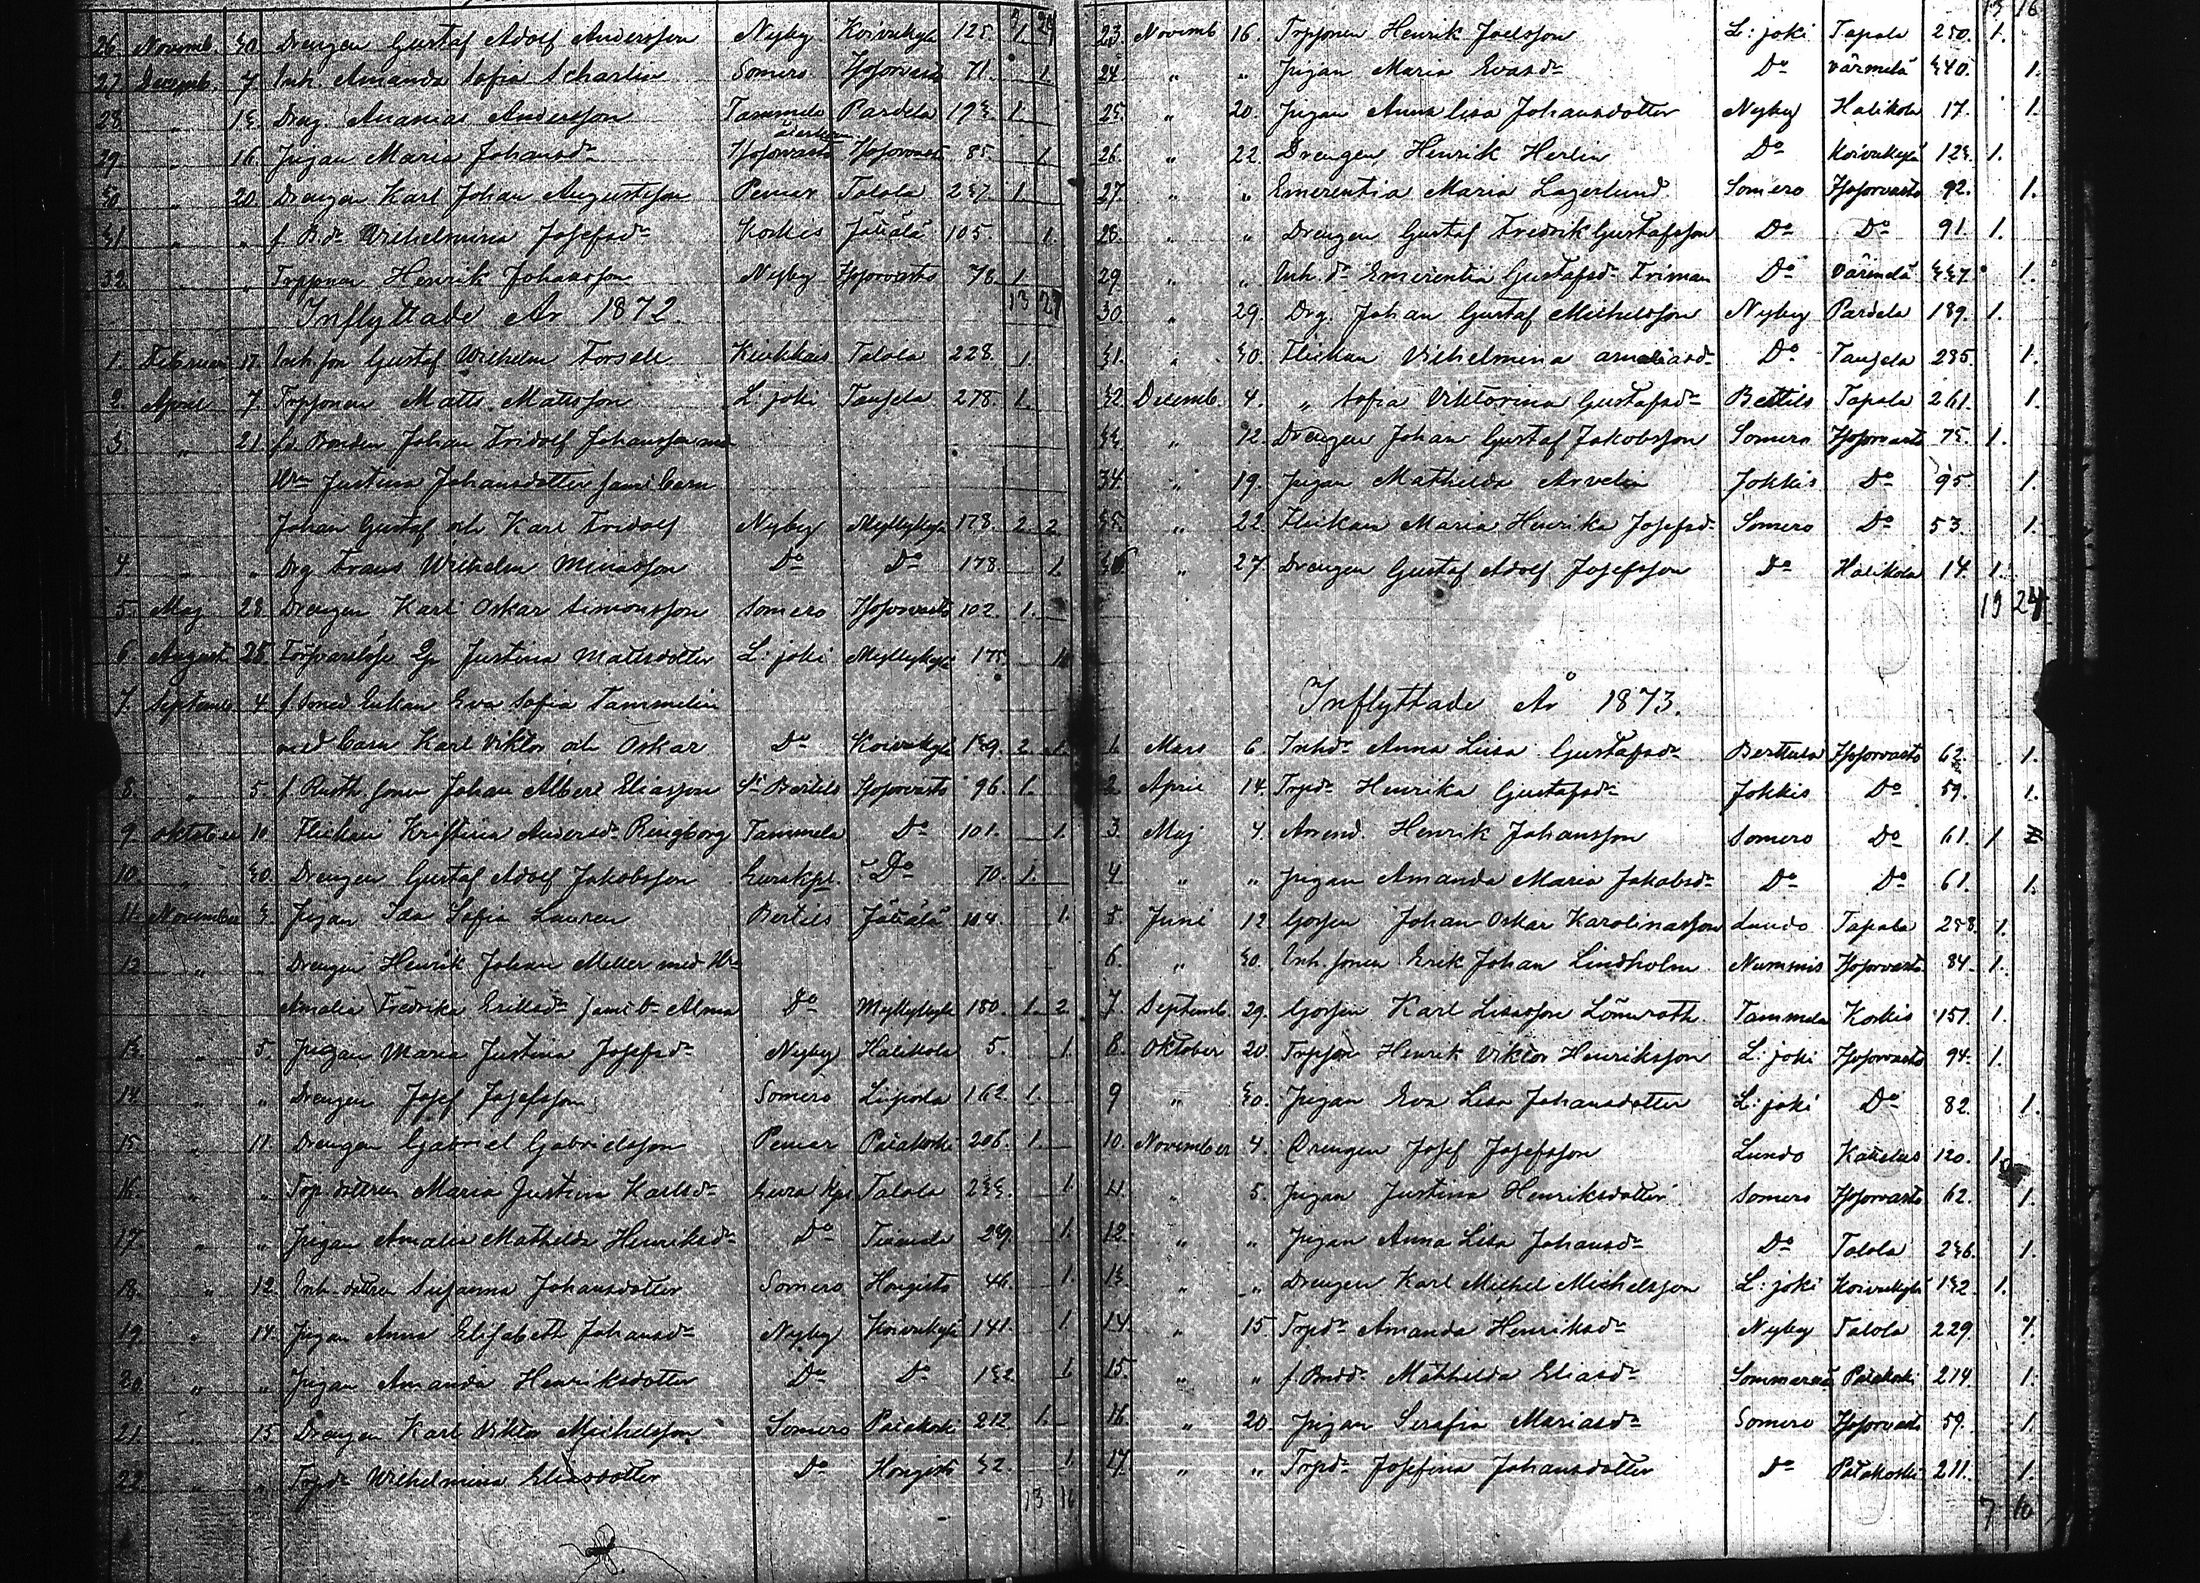 26 Novemb. 30. Drengen Gustaf Adolf Andersson Nyby Koivukylä 125. 1.
27 Decemb. 7 Inh. Amanda Sofia Scharlin Somero Hpforvasto 71. 1.
28. " 13. Dreng. Ananias Andersson Tammela Pardela 193. 1.
29 " 16. Pigan Maria Johansdr 85. 1.
30 " 20. Drengen Karl Johan Augustsson Pemar Talola 237. 1.
31 " " f. Bdr Wilhelmina Josefsdr Koskis Jätälä 105. 1.
32. " Torpsonen Henrik Johansson Nyby 78. 1.
13 27
Inflyttade År 1872.
1. Februari 17. Inh. son Gustaf Wilhelm Forsell Kiukkais Talola 228. 1.
2. April 7. Torpsonen Matts Matsson L: joki Tangela 278. 1.
3. " 21. f.d. Bonden Johan Fridolf Johansson med
Hru Justina Johansdotter samt barn
Johan Gustaf och Karl Fridolf Nyby Myllykylä 178. 2 2
4 " " Drg Frans Wilhelm Minasson Do Do 178 1.
5. Maj 28. Drengen Karl Oskar Simonsson Somero 102. 1.
6. August 25. Försvarslösa Qp Justina Matsdotter L: joki Myllykylä 175.
7. Septemb 4 f. Enkan Eva Sofia Tammelin
med barn Karl Viktor och Oskar Do Koivukylä 139. 2 1.
8. " 5. f. Rusth. sonen Johan Albert Eliasson St Bertils 96. 1.
9. Oktober 10. Flickan Kristina Andersdr Ringborg Tammela Do 101. 1.
10. " 30. Drengen Gustaf Adolf Jakobsson Eurakpl. Do 70. 1.
11. November 3. Pigan Ida Sofia Lauren Bertils Jätälä 104. 1.
12 " " Drengen Henrik Johan Meller med Hru
Amalia Fredrika Eriksdr samt dr Alma Do Myllykylä 180. 1. 2
13. " 5. Pigan Maria Justina Josefsdr Nyby Halikola 5. 1.
14. " " Drengen Josef Josefsson Somero Liipola 162. 1.
15. " 11. Drengen Gabriel Gabrielsson Pemar Palakoski 206. 1.
16. " " Torp. dottren Maria Justina Karlsdr Eura kpl Talola 233. 1.
17. " " Pigan Amalia Mathilda Henriksdr Do 249. 1.
18. " 12. Inh. dottren Susanna Johansdotter Somero Hongisto 46. 1.
19. " 14. Pigan Anna Elisabeth Johansdr Nyby Koivukylä 141. 1
20. " " Pigan Amanda Henriksdotter Do Do 132. 1
21. " 15. Drengen Karl Viktor Michelsson Somero Palakoski 212. 1.
22. " " Torpdr Wilhelmina Eliasdotter Do Hongisto 32. 1
13 16
13 16
23. Novemb 16. Torpsonen Henrik Joelsson L: joki Tapala 250. 1.
24. " " Pigan Maria Evasdr Do Värmelä 340. 1.
25. " 20. Pigan Anna Lisa Johansdotter Nyby Halikola 17. 1.
26. " 22. Drengen Henrik Herlin Do Koivukylä 123. 1.
27. " " Emerentia Maria Lagerlund Somero 92. 1.
28. " " Drengen Gustaf Fredrik Gustafsson Do Do 91. 1.
29. " " Inh. dr Emerentia Gustafsdr Friman Do Värmelä 337. 1.
30. " 29. Drg. Johan Gustaf Michelsson Nyby Pardela 189. 1.
31. " 30. Flickan Vilhelmina Amaliasdr Do Tangela 285. 1.
32. Decemb. 4. " Sofia Viktorina Gustafsdr Bertils Tapala 261. 1.
33. " 12. Drengen Johan Gustaf Jakobsson Somero 73. 1.
34. " 19. Pigan Mathilda Arvelin Jokkis Do 95 1.
35. " 22. Flickan Maria Henrika Josefsdr Somero Do 53. 1.
36 " 27. Drengen Gustaf Adolf Josefsson Do Halikola 14. 1.
19 24
Inflyttade År 1873.
1. Mars 6. Inhdr Anna Liisa Gustafsdr Berttula 62. 1.
2. April 14. Torpdr Henrika Gustafsdr Jokkis Do 59. 1.
3. Maj 4. Arrend. Henrik Johansson Somero Do 61. 1
4 " " Pigan Amanda Maria Jakobsdr Do Do 61. 1.
5. Juni 12 Gossen Johan Oskar Karolinasson Lundo Tapala 258. 1.
6. " 30. Inh. sonen Erik Johan Lindholm Nummis 84. 1.
7. Septemb. 29. Gossen Karl Lisasson Lönnroth Tammela Koskis 151. 1.
8. Oktober 20. Torpson Henrik Viktor Henriksson L: joki 94. 1.
9 " 30. Pigan Eva Lisa Johansdotter L: joki Do 82. 1.
10. November 4. Drengen Josef Josefsson Lundo 120. 1.
11. " 5. Pigan Justina Henriksdotter Somero 62. 1.
12 " " Pigan Anna Lisa Johansdr Do Talola 236. 1.
13 " " Drengen Karl Michel Michelsson L: joki Koivukylä 132. 1.
14. " 15 Torpdr Amanda Henriksdr Nyby Talola 229 1.
15. " " f. Bonddr Mathilda Eliasdr Palakoski 214. 1.
16. " 20. Pigan Serafia Mariasdr Somero 59. 1.
17. " " Torpdr Josefina Johansdotter Do Palakoski 211. 1.
7 10